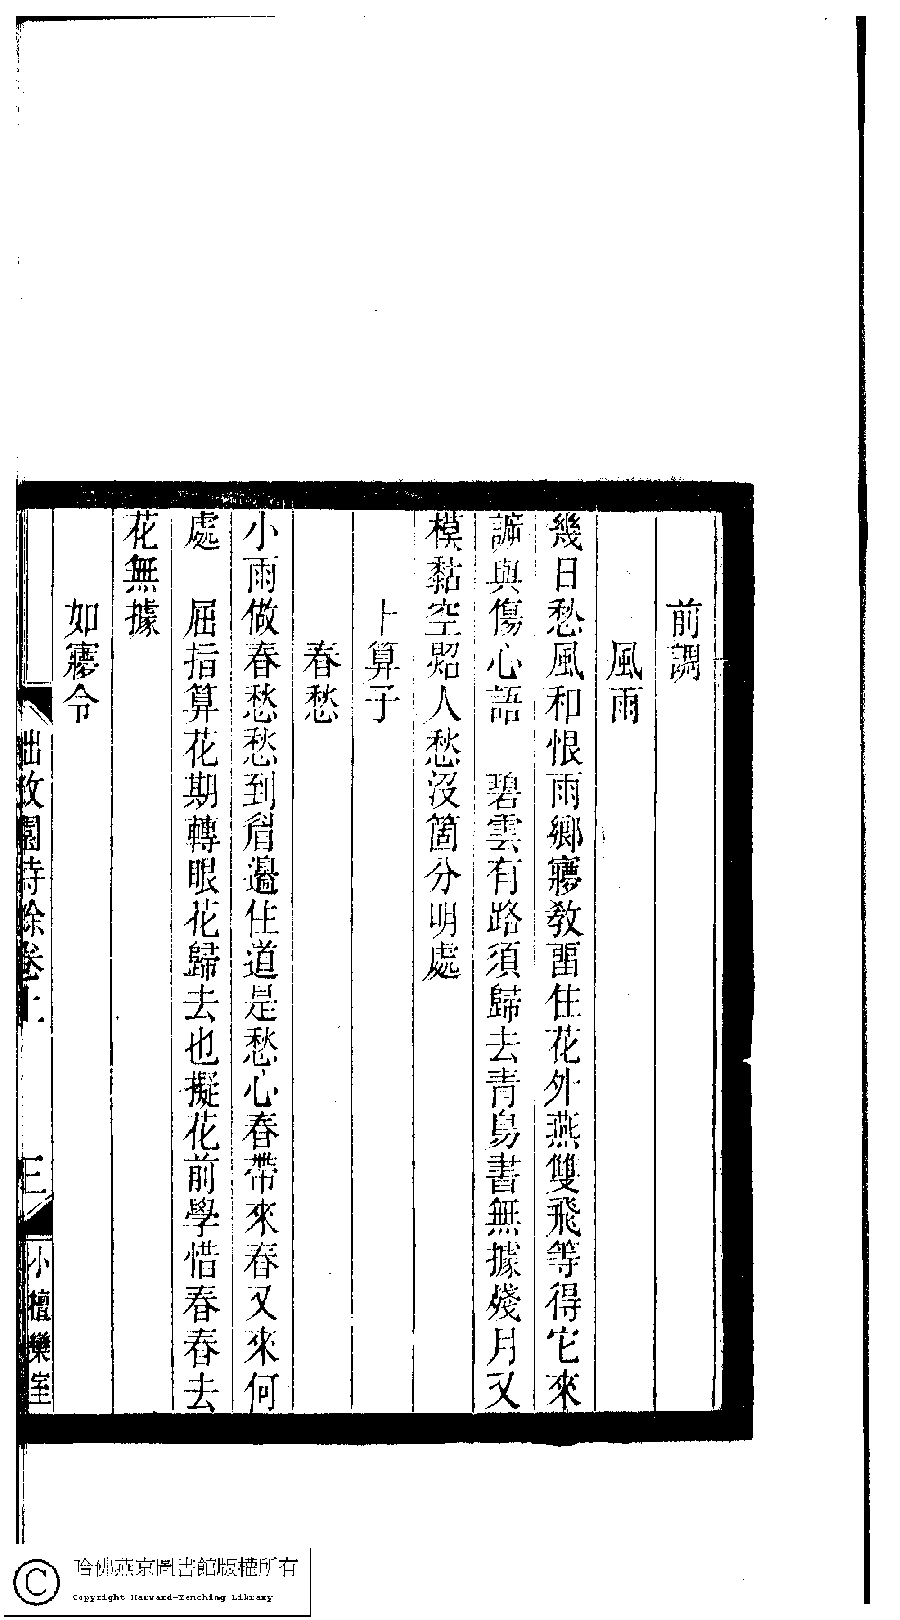 前調
風雨
幾日愁風和恨雨鄉寱教畱住花外燕雙飛等得它來
訴與傷心語　碧雲有路須歸去青鳥書無據殘月又
模黏空照人愁沒箇分明處
卜算子
春愁
小雨做春愁愁到眉邊住道是愁心春帶來春又來何
處　屈指算花期轉眼花歸去也擬花前學惜春春去
花無據
如寱令
拙政園詩餘卷上
三
小檀欒室
哈佛燕京圖書館版權所有
Copyright Harvard-Yenching Library